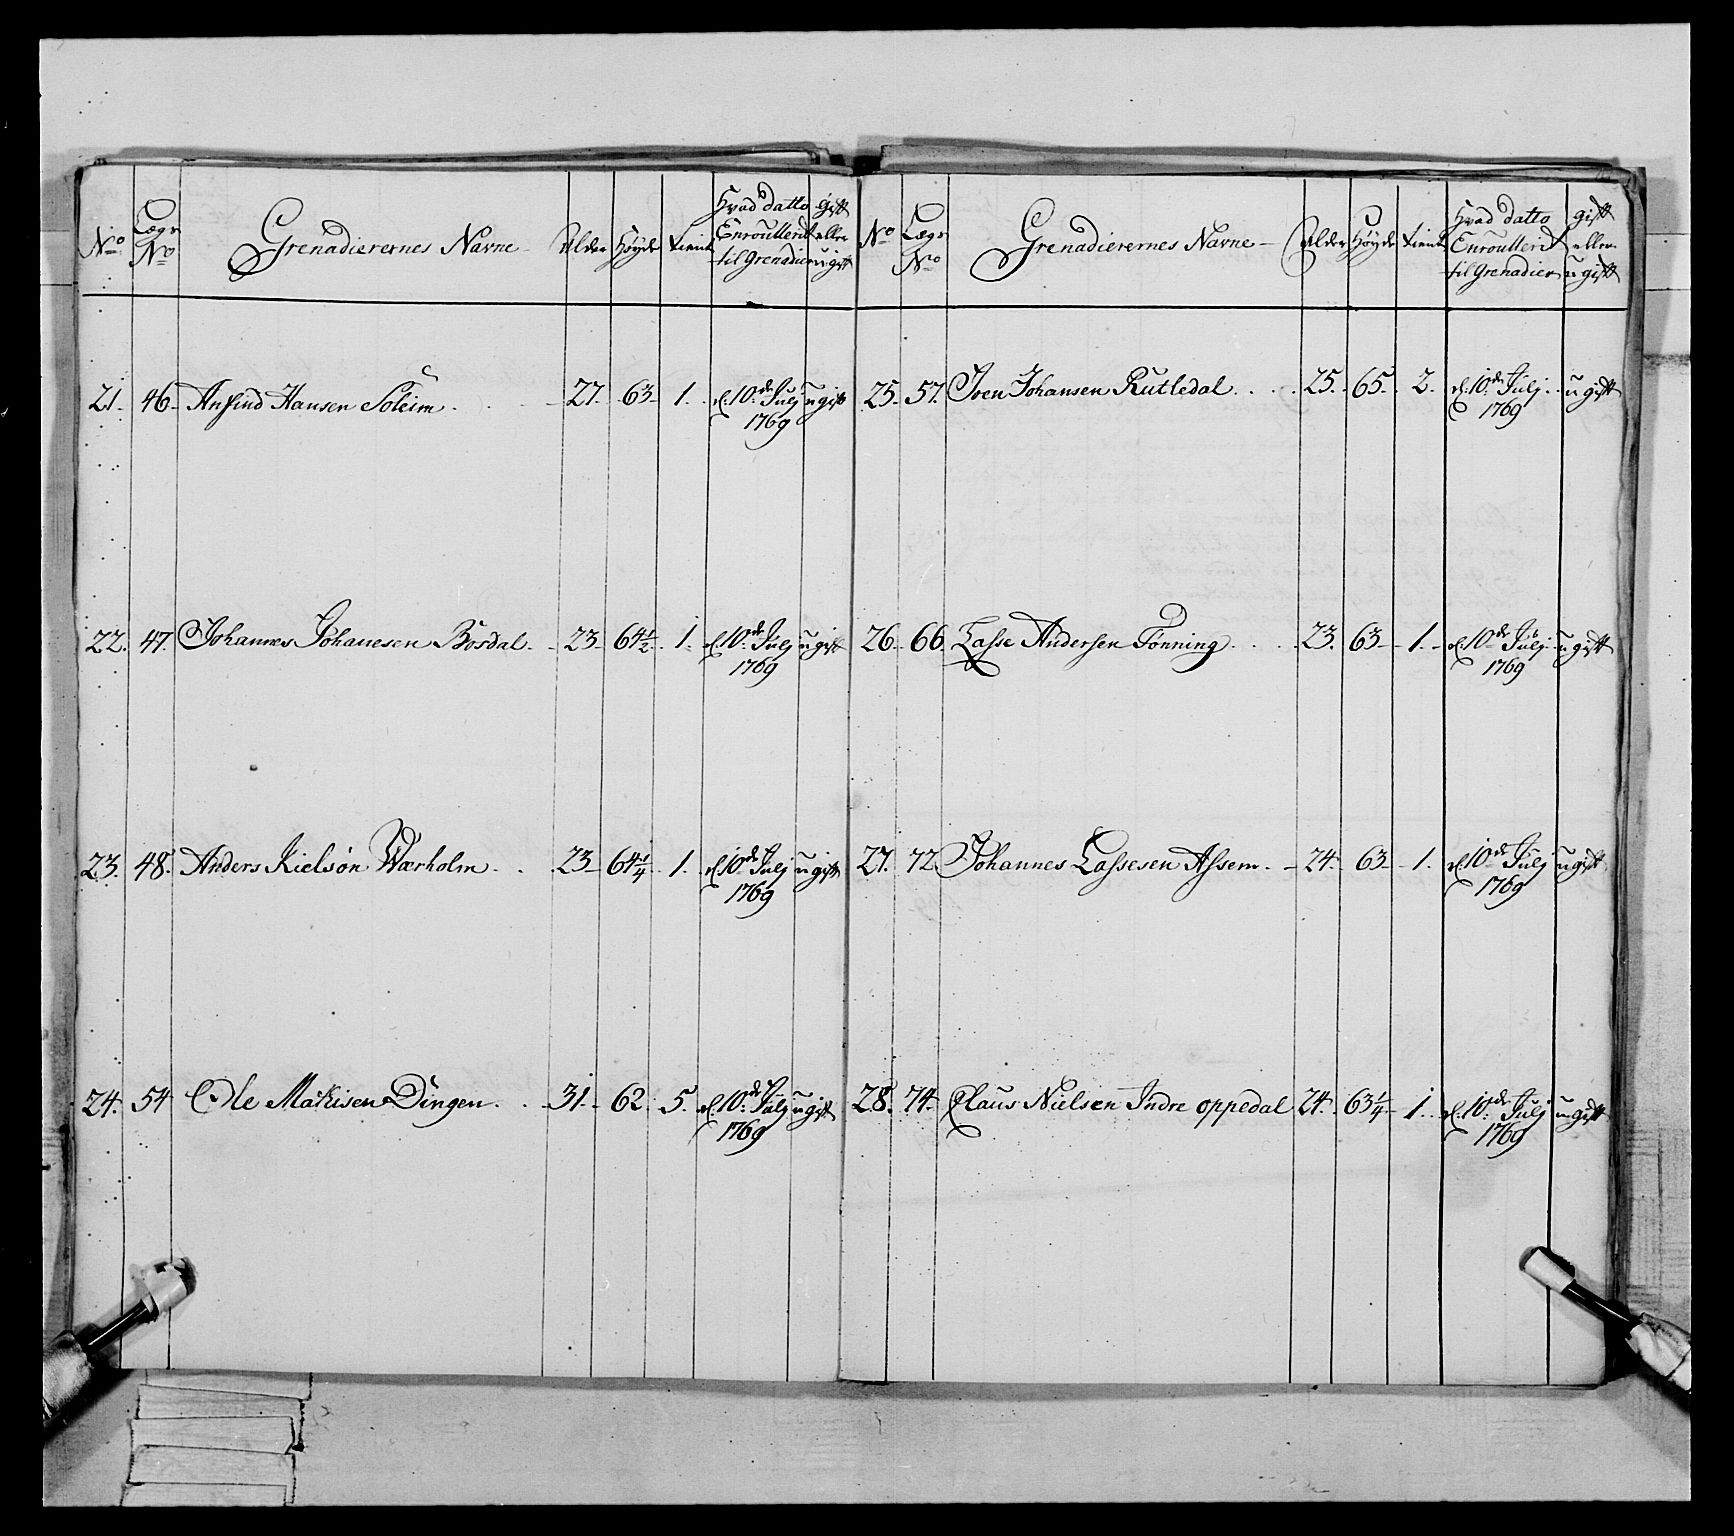 No Lægs No Grenadierernes Navne Alder Høyde tient Hvad datto Enroullerit til Grenadier gift eller ugift
21. 46. Anfind Hansen Soleim 27. 63 1. d. 10de Julj 1769 ugift
22. 47. Johannes Johanesen Bordal 23 64 1/2 1. d. 10de Julj 1769 ugift
23. 48. Anders Nielsøn Wærholm 23 64 1/4 1. d. 10de Julj 1769 ugift
24. 54 Ole Matisen Dingen 31. 62 5. d. 10de Julj 1769 ugift
No Lægs No Grenadierernes Navne Alder Høyde tient Hvad datto Enroullerit til Grenadier gift eller ugift
25. 57. Iven Johansen Rutledal 25. 65. 2. d. 10de Julj 1769 ugift
26. 66. Lasse Andersen Tønning 23. 63 1. d. 10de Julj 1769 ugift
27. 72 Johannes Lassesen Assem 24. 63 1. d. 10de Julj 1769 ugift
28. 74. Claus Nielsen Indre oppedal 24. 63 1/4 1. d. 10de Julj 1769 ugift